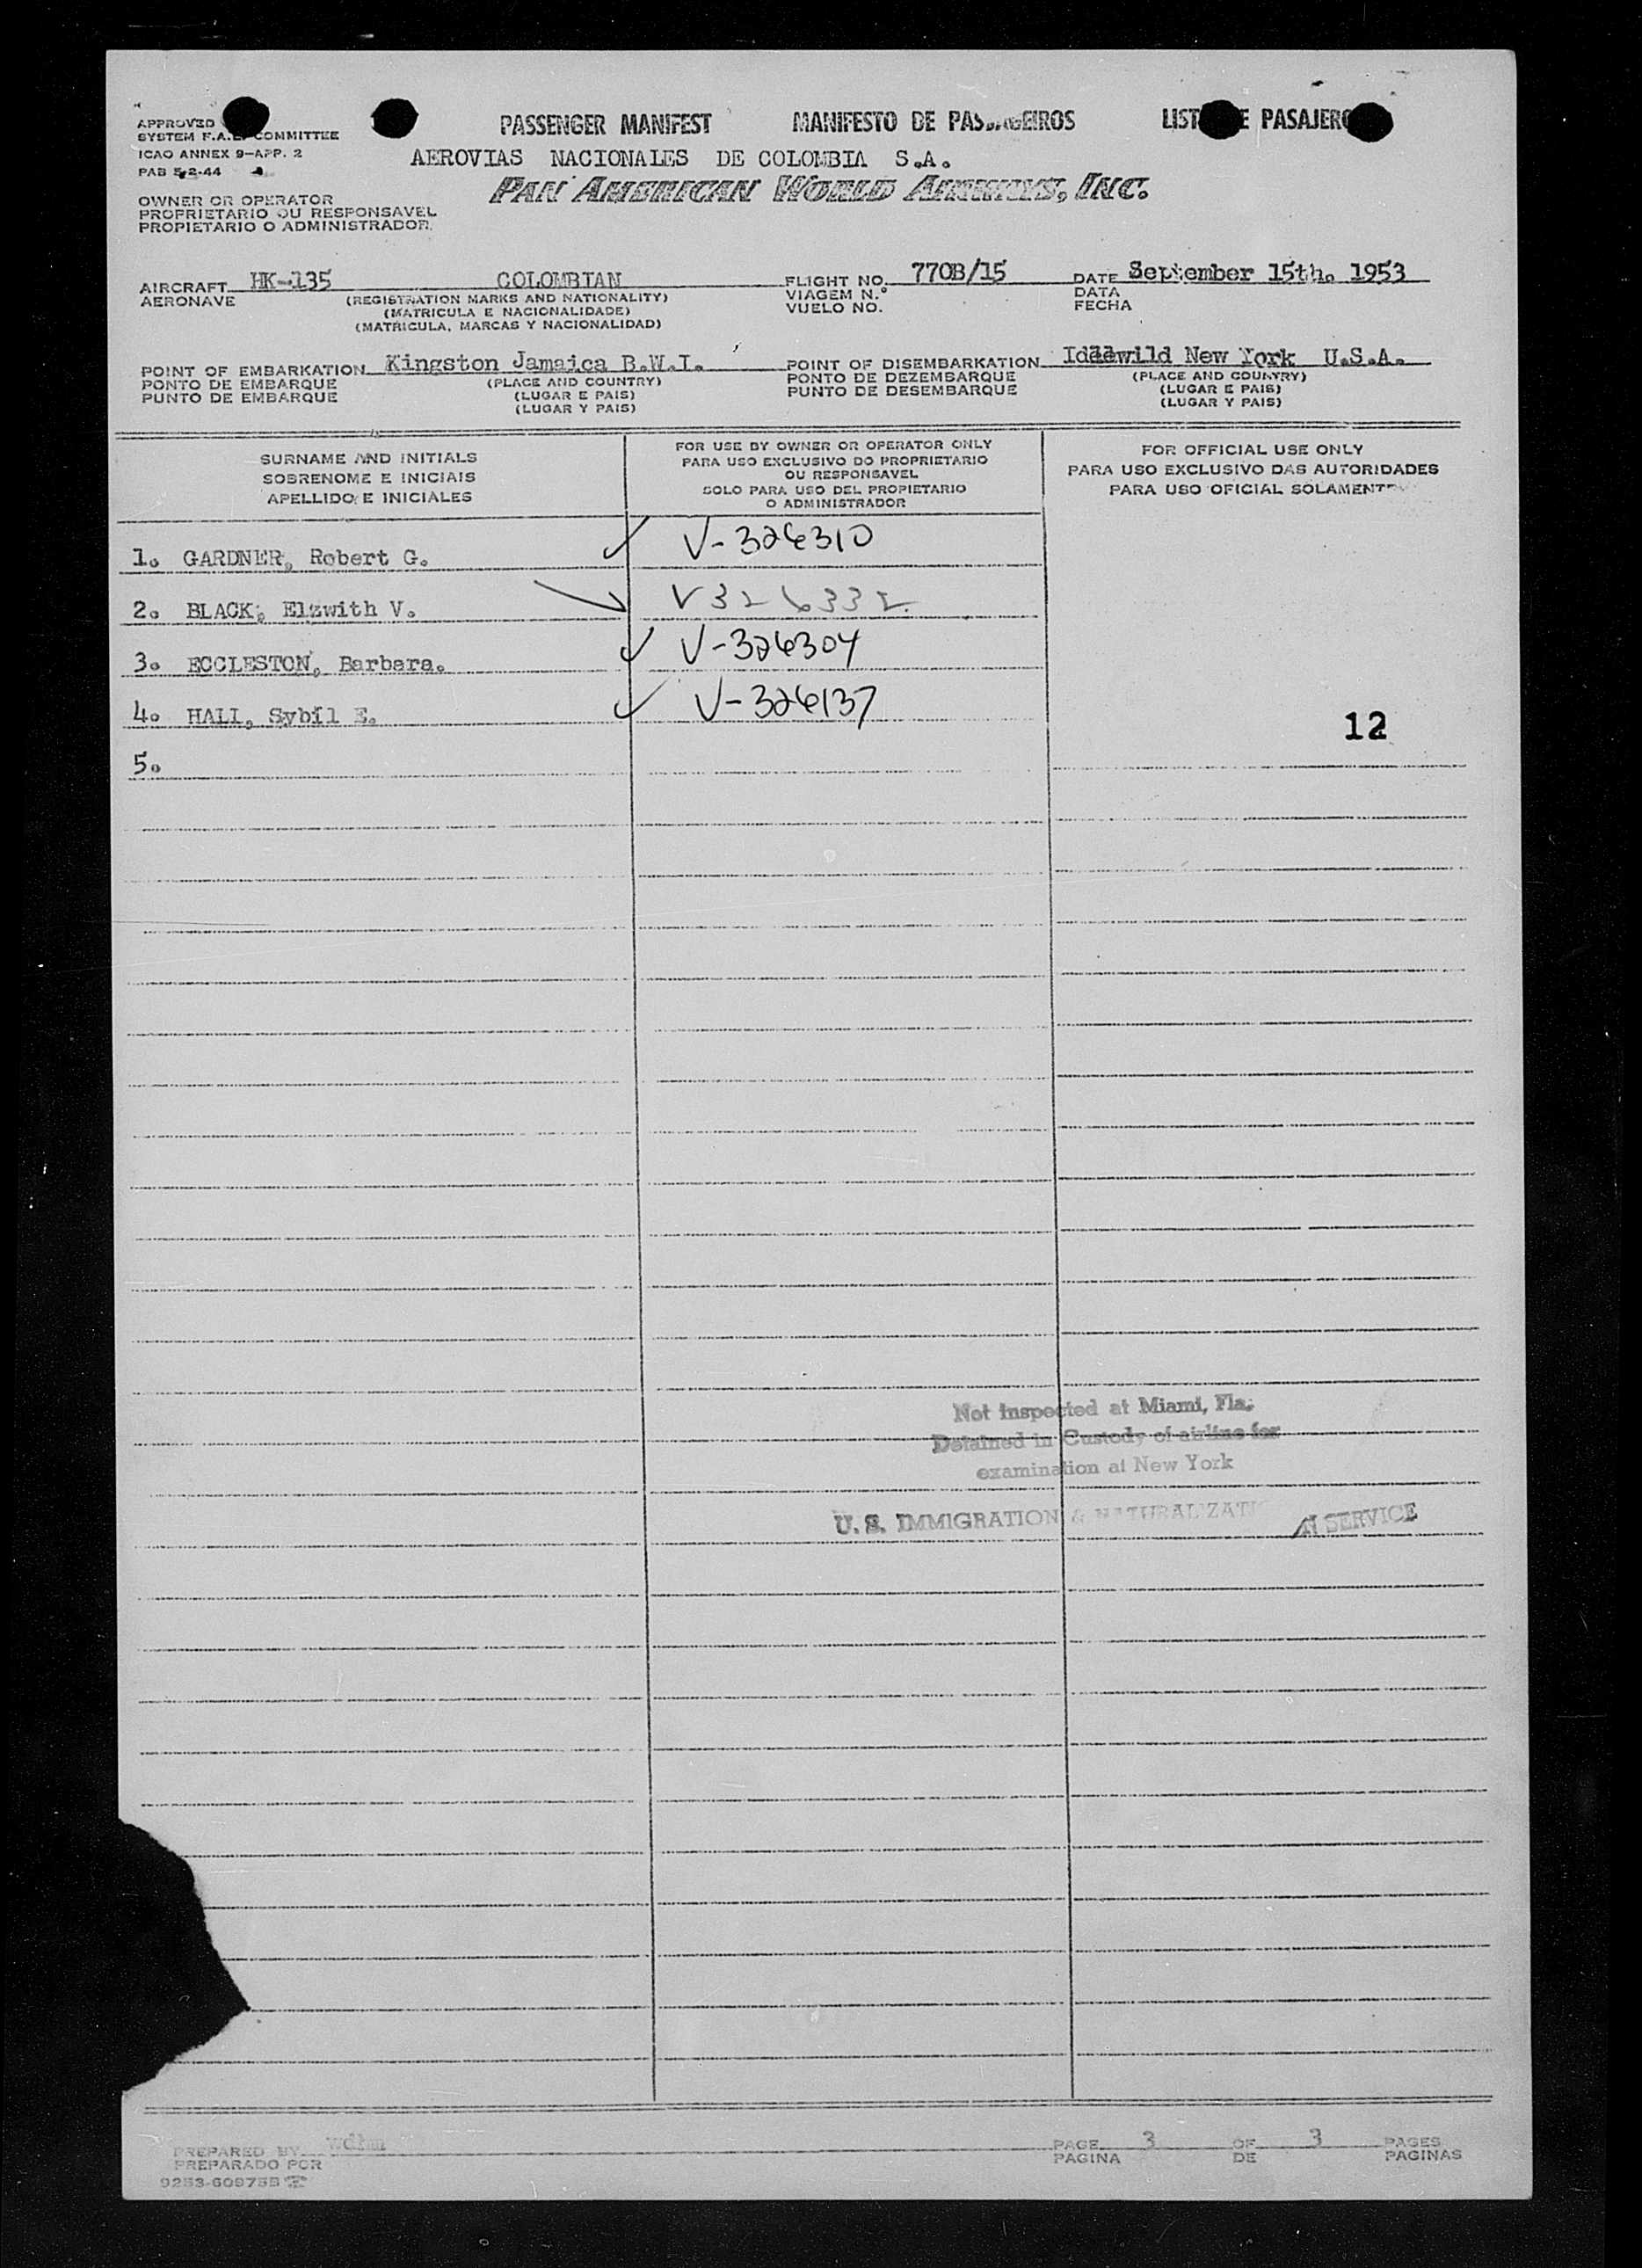 PASSENGER MANIFEST MANIFESTO DE PASSAGEIROS LISTA DE PASAJEROS
APPROVED
SYSTEM F.A.L. COMMITTEE
ICAO ANNEX 9-APP. 2
PAB 5-2-44
AEROVIAS NACIONALES DE COLOMBIA S.A.
PAN AMERICAN WORLD AIRWAYS, INC.
OWNER OR OPERATOR
PROPRIETARIO OU RESPONSAVEL
PROPIETARIO O ADMINISTRADOR
AIRCRAFT HK-135 COLOMBIAN FLIGHT NO. 770B/15 DATE September 15th. 1953
AERONAVE (REGISTRATION MARKS AND NATIONALITY) VIAGEM N.º DATA
(MATRICULA E NACIONALIDADE) VUELO NO. FECHA
(MATRICULA, MARCAS Y NACIONALIDAD)
POINT OF EMBARKATION Kingston Jamaica B.W.I. POINT OF DISEMBARKATION Idlewild New York U.S.A.
PONTO DE EMBARQUE (PLACE AND COUNTRY) PONTO DE DEZEMBARQUE (PLACE AND COUNTRY)
PUNTO DE EMBARQUE (LUGAR E PAIS) PUNTO DE DESEMBARQUE (LUGAR E PAIS)
(LUGAR Y PAIS) (LUGAR Y PAIS)
SURNAME AND INITIALS
SOBRENOME E INICIAIS
APELLIDO E INICIALES
FOR USE BY OWNER OR OPERATOR ONLY
PARA USO EXCLUSIVO DO PROPRIETARIO
OU RESPONSAVEL
SOLO PARA USO DEL PROPIETARIO
O ADMINISTRADOR
FOR OFFICIAL USE ONLY
PARA USO EXCLUSIVO DAS AUTORIDADES
PARA USO OFICIAL SOLAMENTE
1. GARDNER, Robert G. ✓ V-326310
2. BLACK, Elzwith V. V326332
3. ECCLESTON, Barbara. ✓ V-326304
4. HALL, Sybil E. ✓ V-326137
12
5.
Not Inspected at Miami, Fla.
Detained in Custody of airline for
examination at New York
U. S. IMMIGRATION & NATURALIZATION SERVICE
PREPARED BY PAGE 3 OF 3 PAGES
PREPARADO POR PAGINA DE PAGINAS